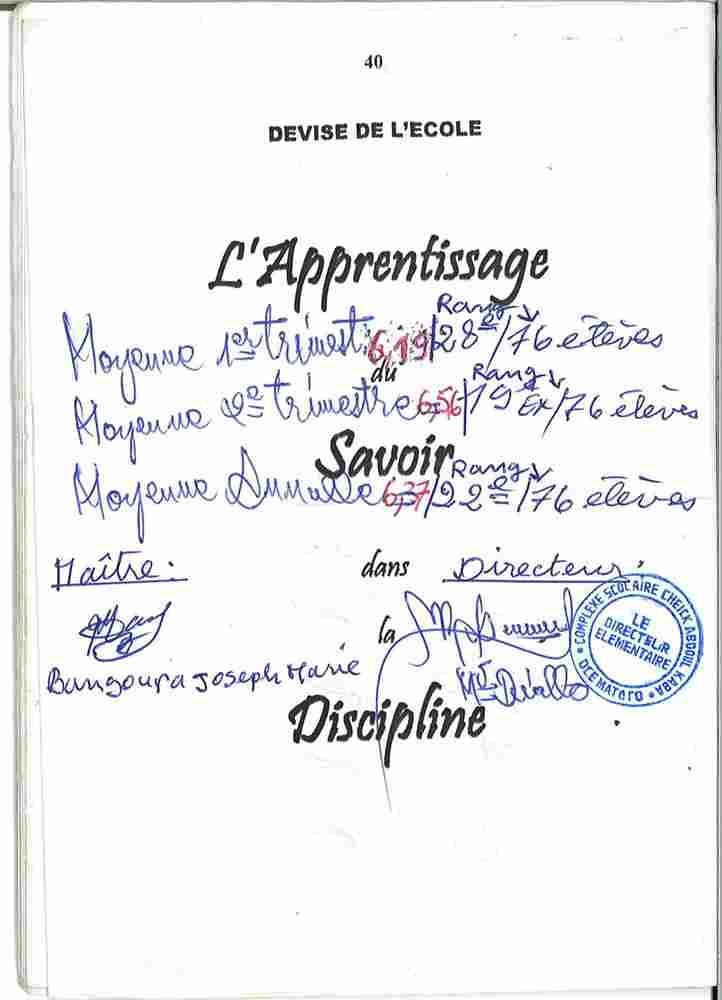 40
DEVISE DE L'ECOLE
L'Apprentissage
Rang
Moyenne 1er trimest 6,19/28e/76 élèves
du
Rang
Moyenne 2e trimestre = 6,56/19 Ex/76 élèves
Savoir
Rang
Moyenne Annuelle = 6,37/22e/76 élèves
Maître :
dans
Directeur :
la
Bangoura Joseph Marie
Mr Diallo
Discipline
COMPLEXE SCOLAIRE CHEICK ABDOUL KABA
LE
DIRECTEUR
ELEMENTAIRE
DCE MATOTO